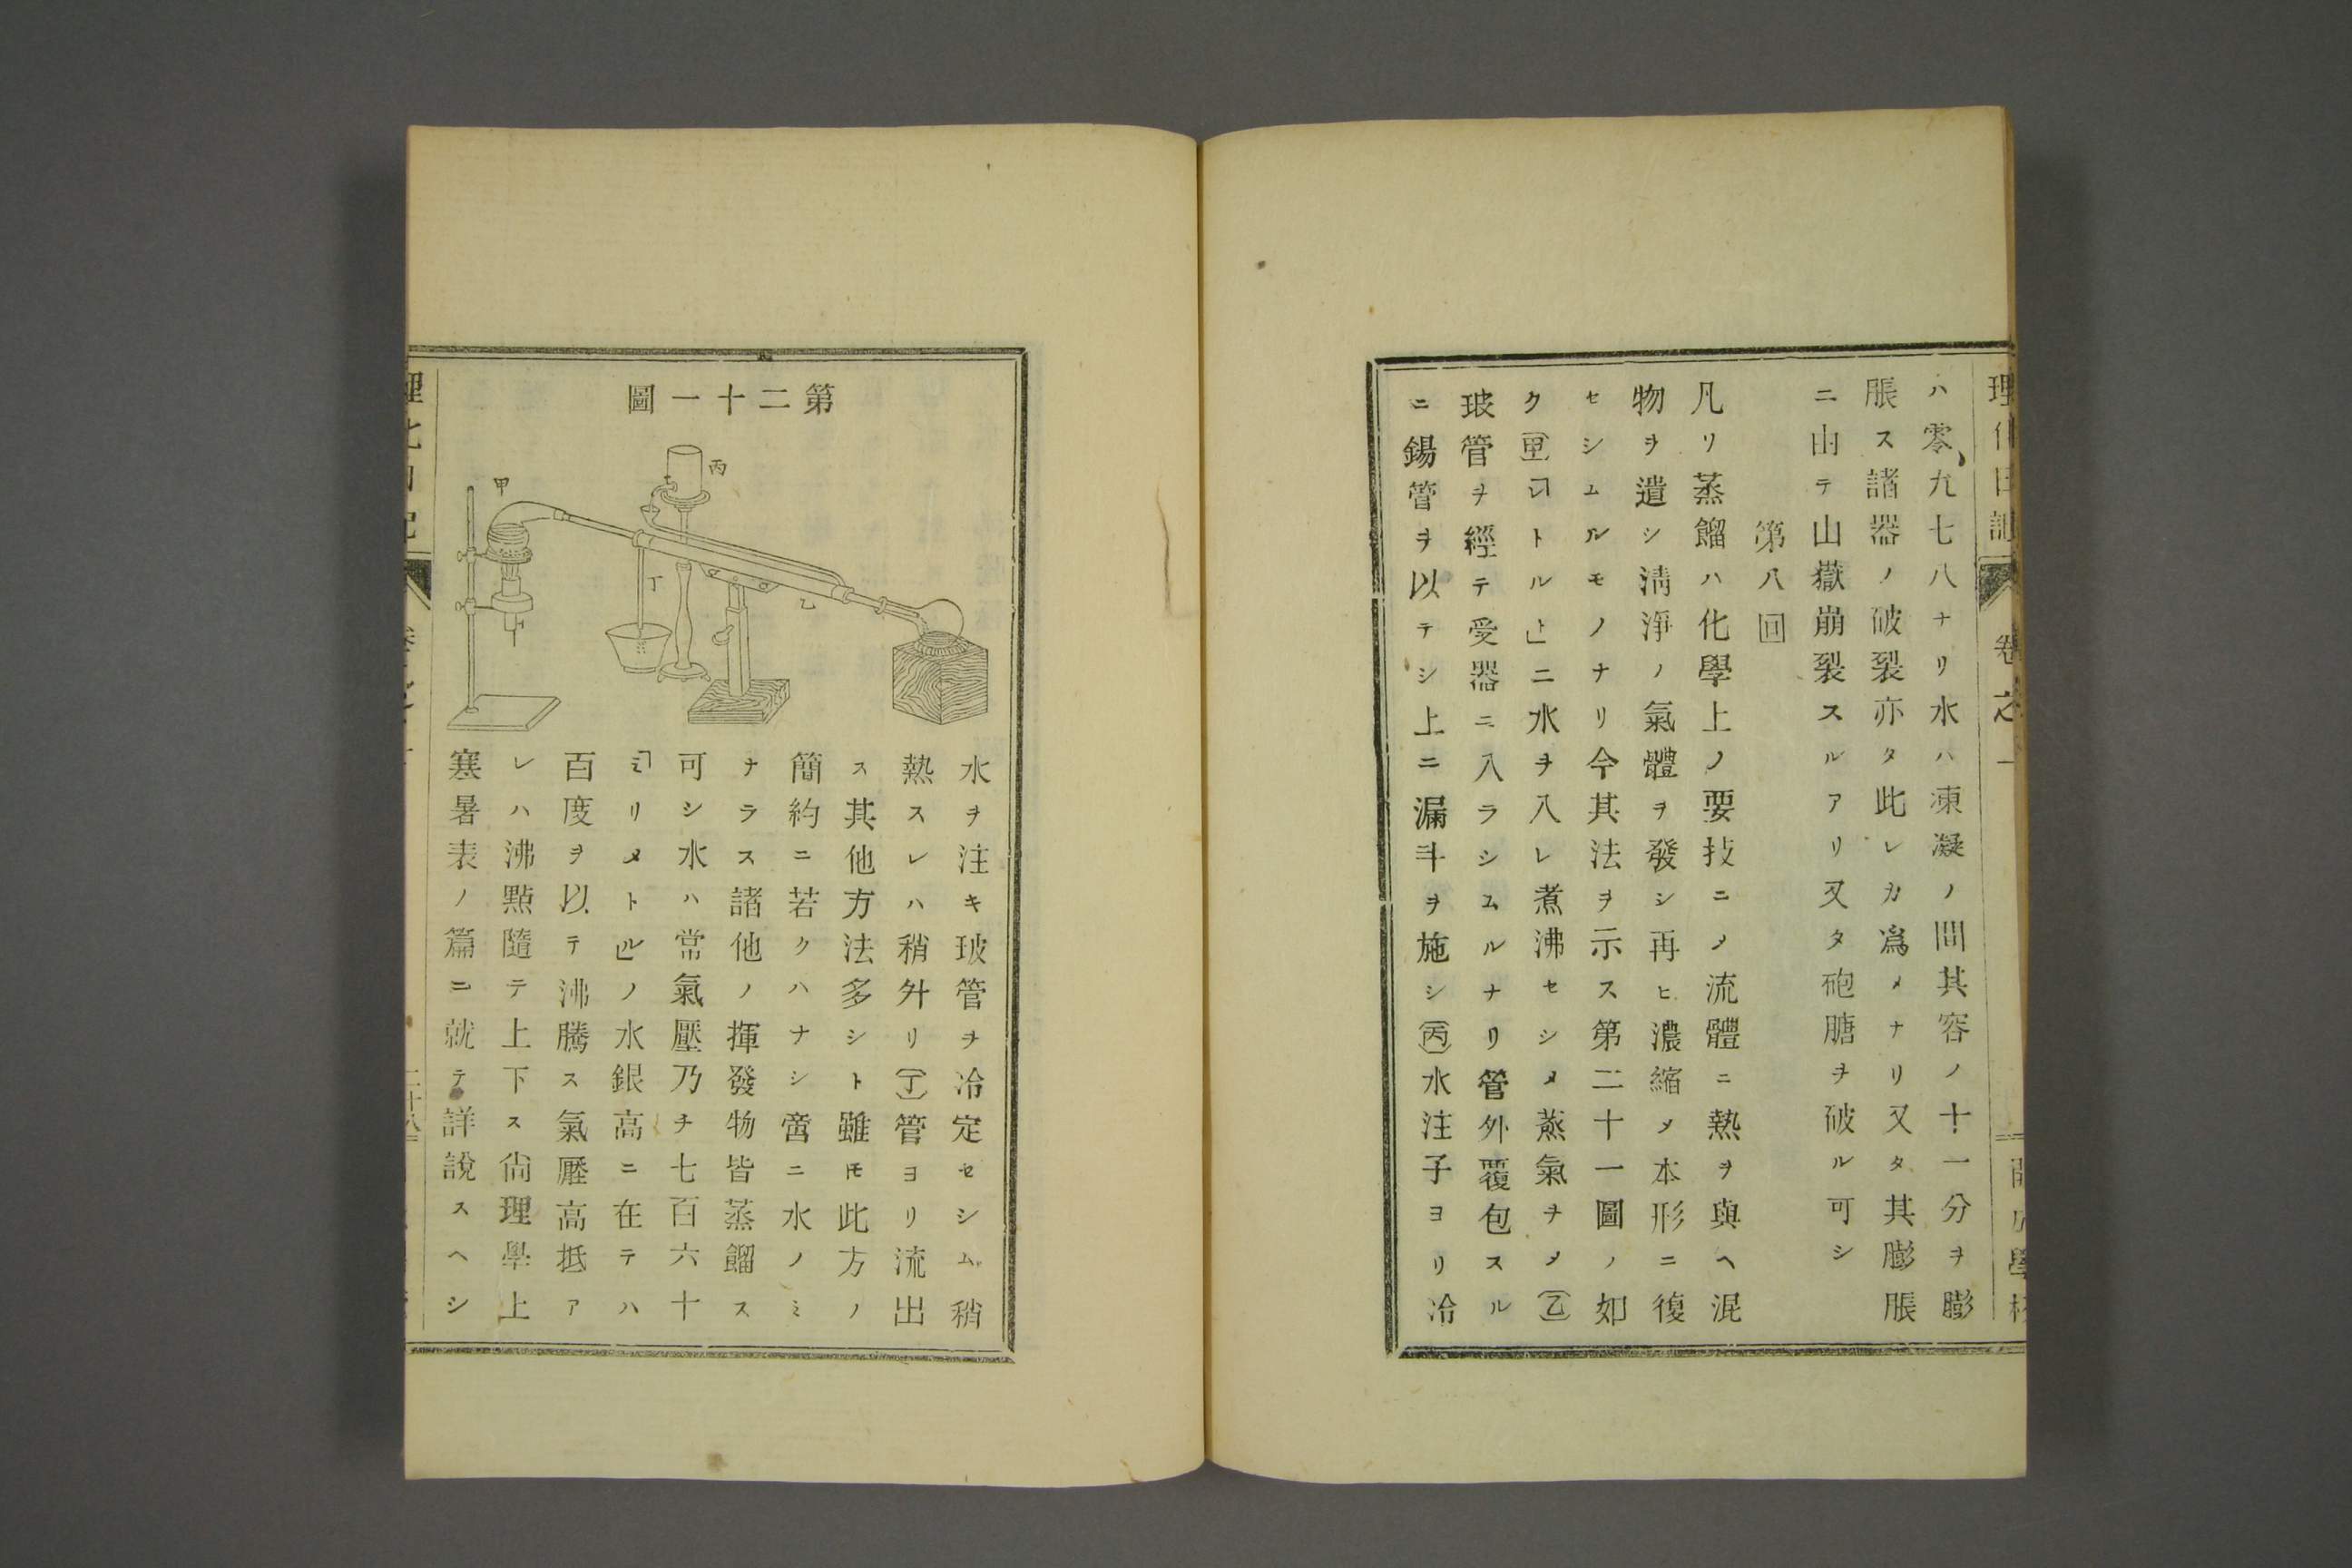 ハ零、九七八ナリ水ハ凍凝ノ間其容ノ十一分ヲ膨
脹ス諸器ノ破裂亦タ此レカ爲メナリ又タ其膨脹
ニ由テ山嶽崩裂スルアリ又タ砲膅ヲ破ル可シ
第八回
凡リ蒸餾ハ化學上ノ要技ニメ流體ニ熱ヲ與ヘ混
物ヲ遺シ淸淨ノ氣體ヲ發シ再ヒ濃縮メ本形ニ復
セシムルモノナリ今其法ヲ示ス第二十一圖ノ如
ク(甲)「レトルト」ニ水ヲ入レ煮沸セシメ蒸氣ヲメ(乙)
玻管ヲ經テ受器ニ入ラシムルナリ管外覆包スル
ニ錫管ヲ以テシ上ニ漏斗ヲ施シ(丙)水注子ヨリ冷
第二十一圖
甲
丙
丁
乙
水ヲ注キ玻管ヲ冷定セシム稍
熱スレハ稍外リ(丁)管ヨリ流出
ス其他方法多シト雖モ此方ノ
簡約ニ若クハナシ啻ニ水ノミ
ナラス諸他ノ揮發物皆蒸餾ス
可シ水ハ常氣壓乃チ七百六十
「ミリメトル」ノ水銀高ニ在テハ
百度ヲ以テ沸騰ス氣壓高抵ア
レハ沸點隨テ上下ス尙理學上
寒暑表ノ篇ニ就テ詳說スヘシ